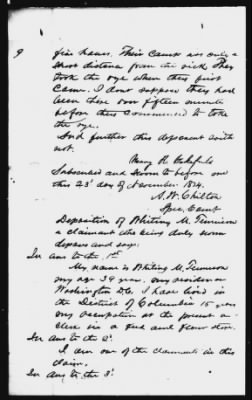 9
five hours. Their Camp was only a
short distance from the rick. They
took the rye when they first
Came. I dont suppose they had
been there over fifteen minutes
before they commenced to take
the rye.
And further this deponent saith
not.
Mary R.
Subscribed and Sworn to before me
this 23' day of November 1874.
A. W. Chilton
Spec. Comr
Deposition of Whiting M. Tennison
a claimant who being duly sworn
deposes and says:
In Ans to the 1st
My name is Whiting M. Tennison
my age 39 years. my residence
Washington D.C. I have lived in
the District of Columbia 15 years
my occupation at the present a
clerk in a feed and flour store.
In Ans to the 2d.
I am one of the claimants in this
claim.
In Ans to the 3d.